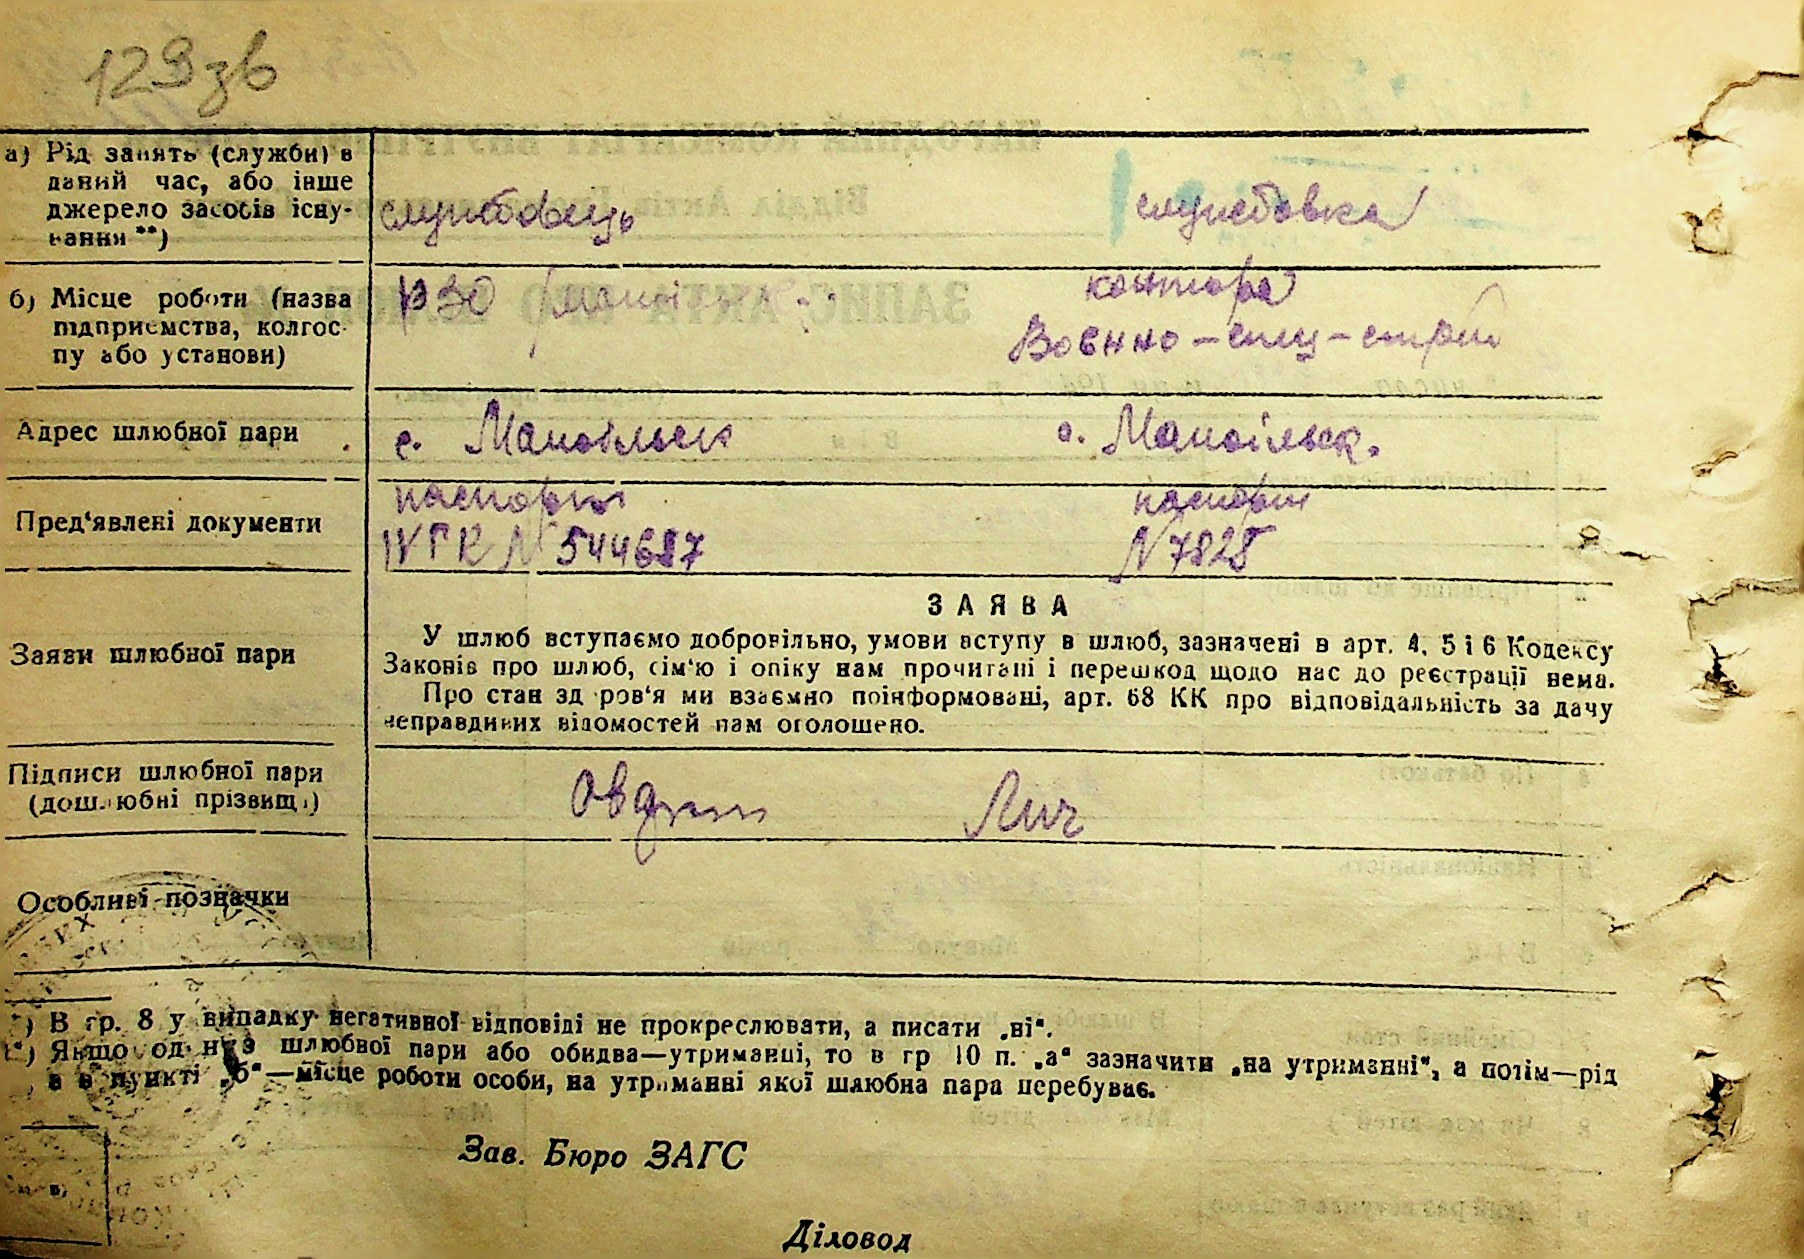 129 зв
а) Рід занять (службн) в
даний час, або інше
джерело засобів існу-
вання **)
службовець
службовка
б) Місце роботи (назва
підприємства, колгос-
пу або установи)
РЗО
контора
Воєнно-спец-строй
Адрес шлюбної пари
с. Маноільськ
с. Маноільськ.
Пред‘явлені документи
паспорт
паспорт
ІѴГК N 544687
N 7828
Заяви шлюбної пари
ЗАЯВА
У шлюб вступаємо добровільно, умови вступу в шлюб, зазначені в арт. 4, 5 і 6 Кодексу
Законів про шлюб, сім‘ю і опіку нам прочитані і перешкод щодо нас до реєстрації нема.
Про стан здоров‘я ми взаємно поінформовані, арт. 68 КК про відповідальність за дачу
неправдивих відомостей нам оголошено.
Підписи шлюбної пари
(дошлюбні прізвища)
Особливі позначки
*) В гр. 8 у випадку негативної відповіді не прокреслювати, а писати „ні“.
**) Якщо один з шлюбної пари або обидва—утриманці, то в гр 10 п. „а“ зазначити „на утриманні“, а потім—рід
а в пункті „б“—місце роботи особи, на утриманні якої шлюбна пара перебуває.
Зав. Бюро ЗАГС
Діловод